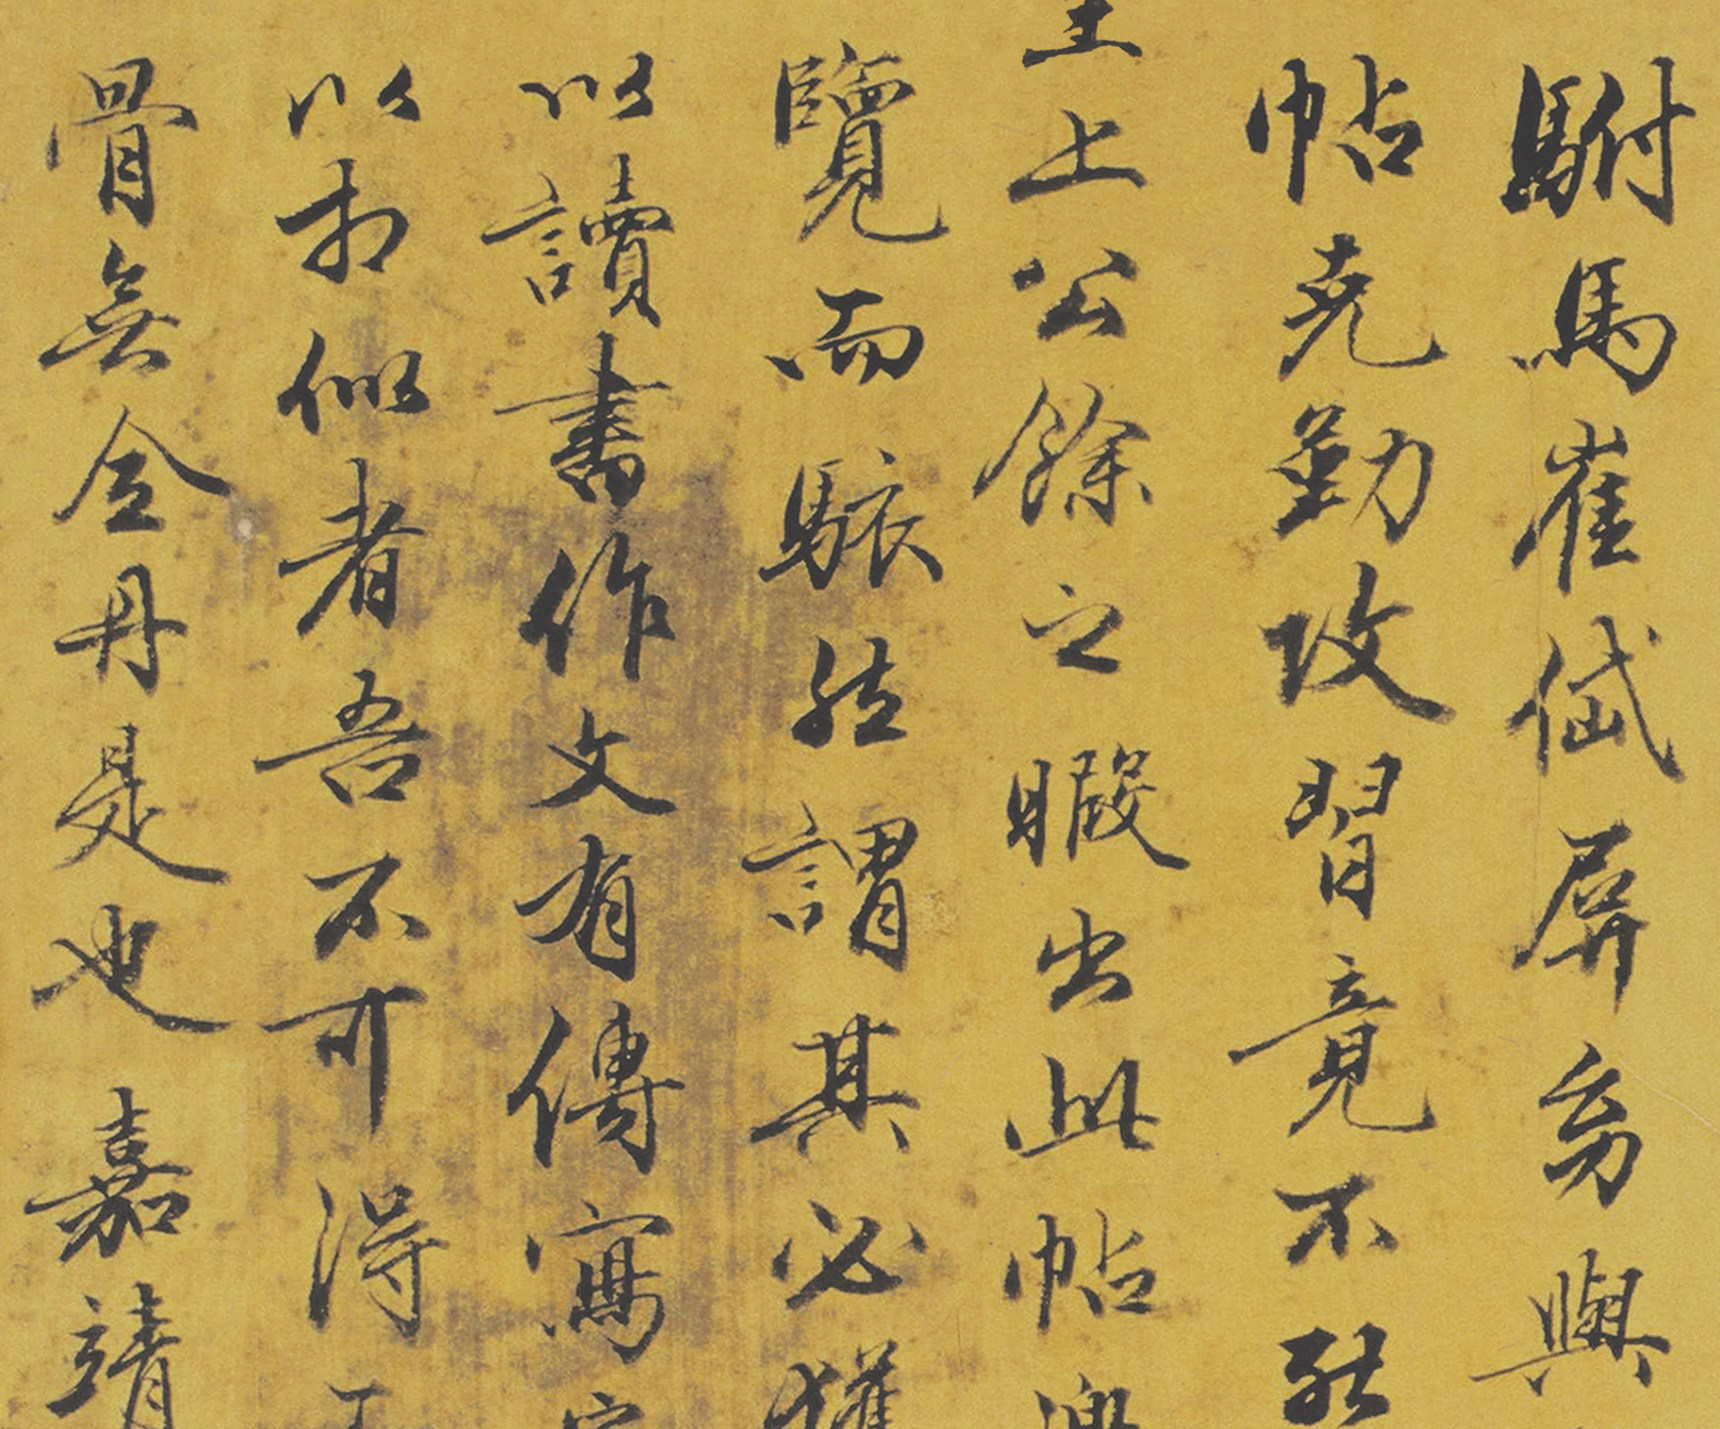 駙馬崔岱屏劣與
帖克勤攻習竟不能
主上公餘之暇出此帖
覽而駭然謂其必獲
以讀書作文有傳寫
以相似者吾不可得
骨無金丹是也嘉靖